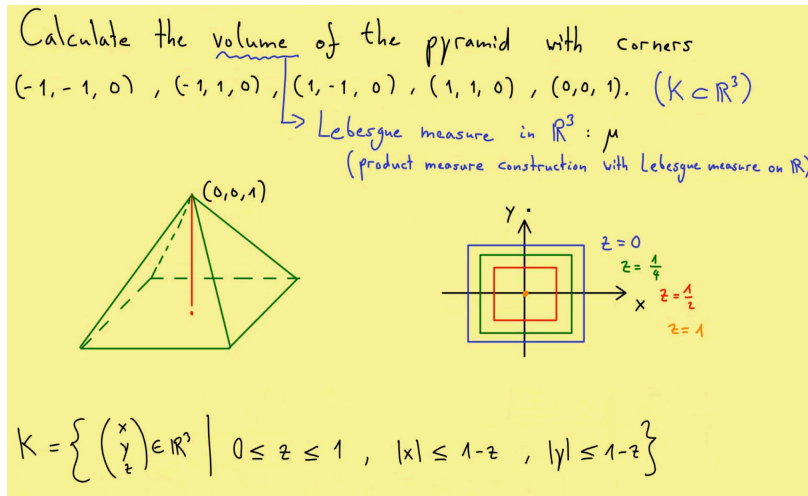 Calculate the volume of the pyramid with corners
(-1,-1,0) , (-1,1,0) , (1,-1,0) , (1,1,0) , (0,0,1). (K ⊂ ℝ³)
Lebesgue measure in ℝ³ : μ
(product measure construction with Lebesgue measure on ℝ)
(0,0,1)
y
z = 0
z = 1/4
x
z = 1/2
z = 1
K = { (x y z) ∈ ℝ³ | 0 ≤ z ≤ 1 , |x| ≤ 1-z , |y| ≤ 1-z }